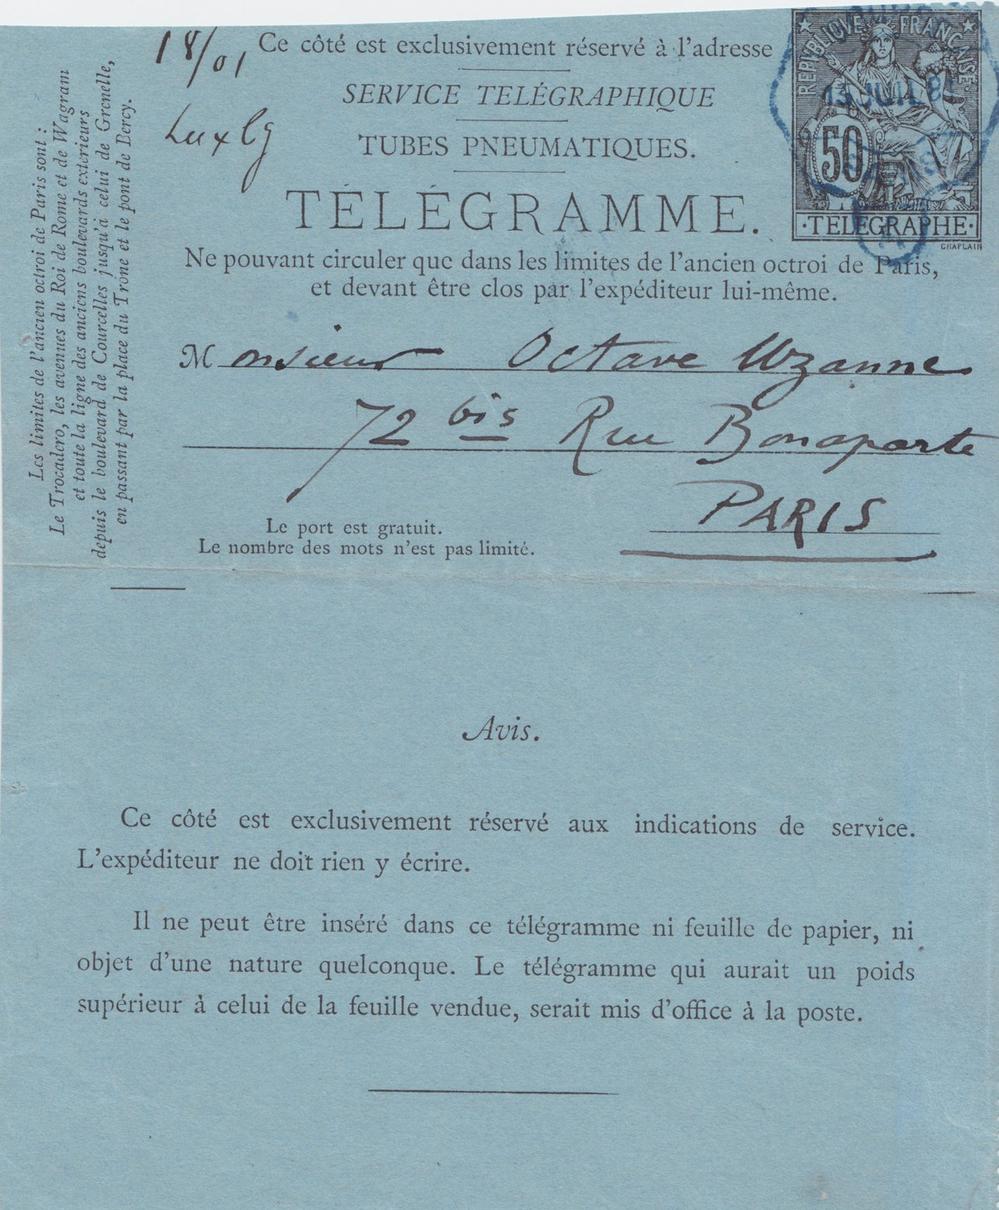 18/01
Luxbg
Ce côté est exclusivement réservé à l'adresse
SERVICE TÉLÉGRAPHIQUE
TUBES PNEUMATIQUES.
TÉLÉGRAMME.
Ne pouvant circuler que dans les limites de l'ancien octroi de Paris,
et devant être clos par l'expéditeur lui-même.
REPUBLIQUE FRANÇAISE
50
·TÉLÉGRAPHE·
CHAPLAIN
Les limites de l'ancien octroi de Paris sont :
Le Trocadero, les avenues du Roi de Rome et de Wagram
et toute la ligne des anciens boulevards extérieurs
depuis le boulevard de Courcelles jusqu'à celui de Grenelle,
en passant par la place du Trône et le pont de Bercy.
Monsieur Octave Uzanne
72 bis Rue Bonaparte
PARIS
Le port est gratuit.
Le nombre des mots n'est pas limité.
Avis.
Ce côté est exclusivement réservé aux indications de service.
L'expéditeur ne doit rien y écrire.
Il ne peut être inséré dans ce télégramme ni feuille de papier, ni
objet d'une nature quelconque. Le télégramme qui aurait un poids
supérieur à celui de la feuille vendue, serait mis d'office à la poste.